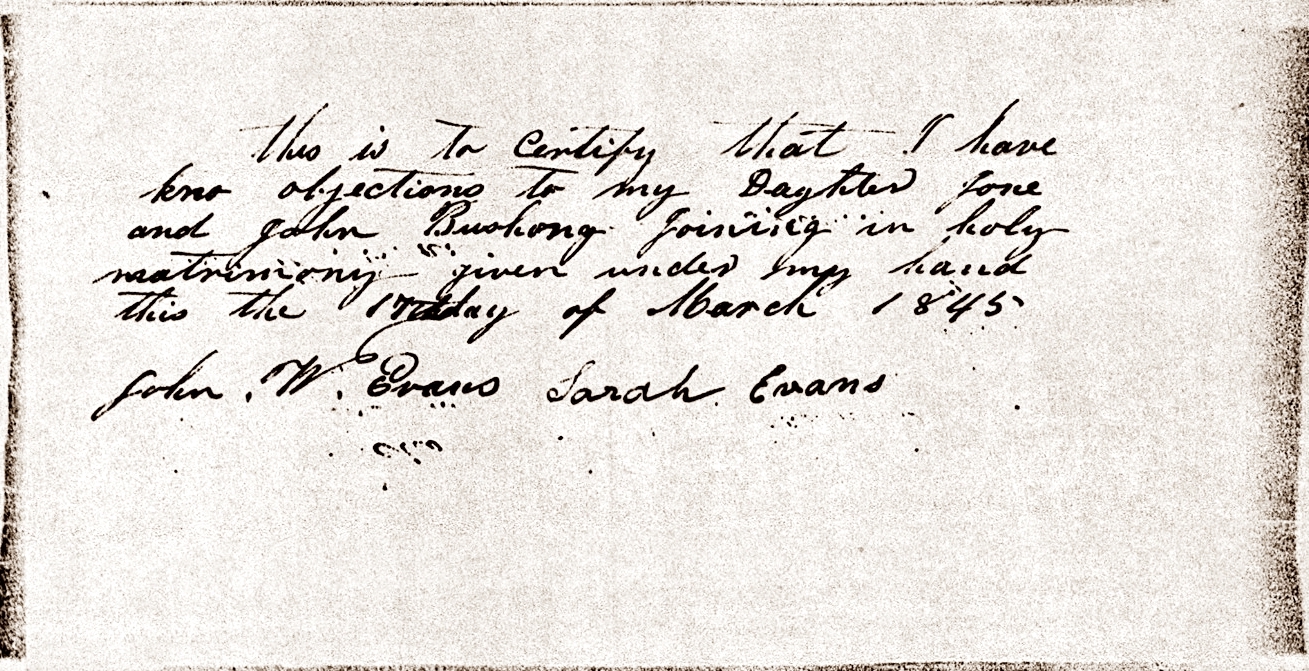 this is to Certify that I have
kno objections to my Daghter Jone
and John Bushong Joining in holy
matrimony given under my hand
this the 17th day of March 1845
John . W. Evans Sarah Evans